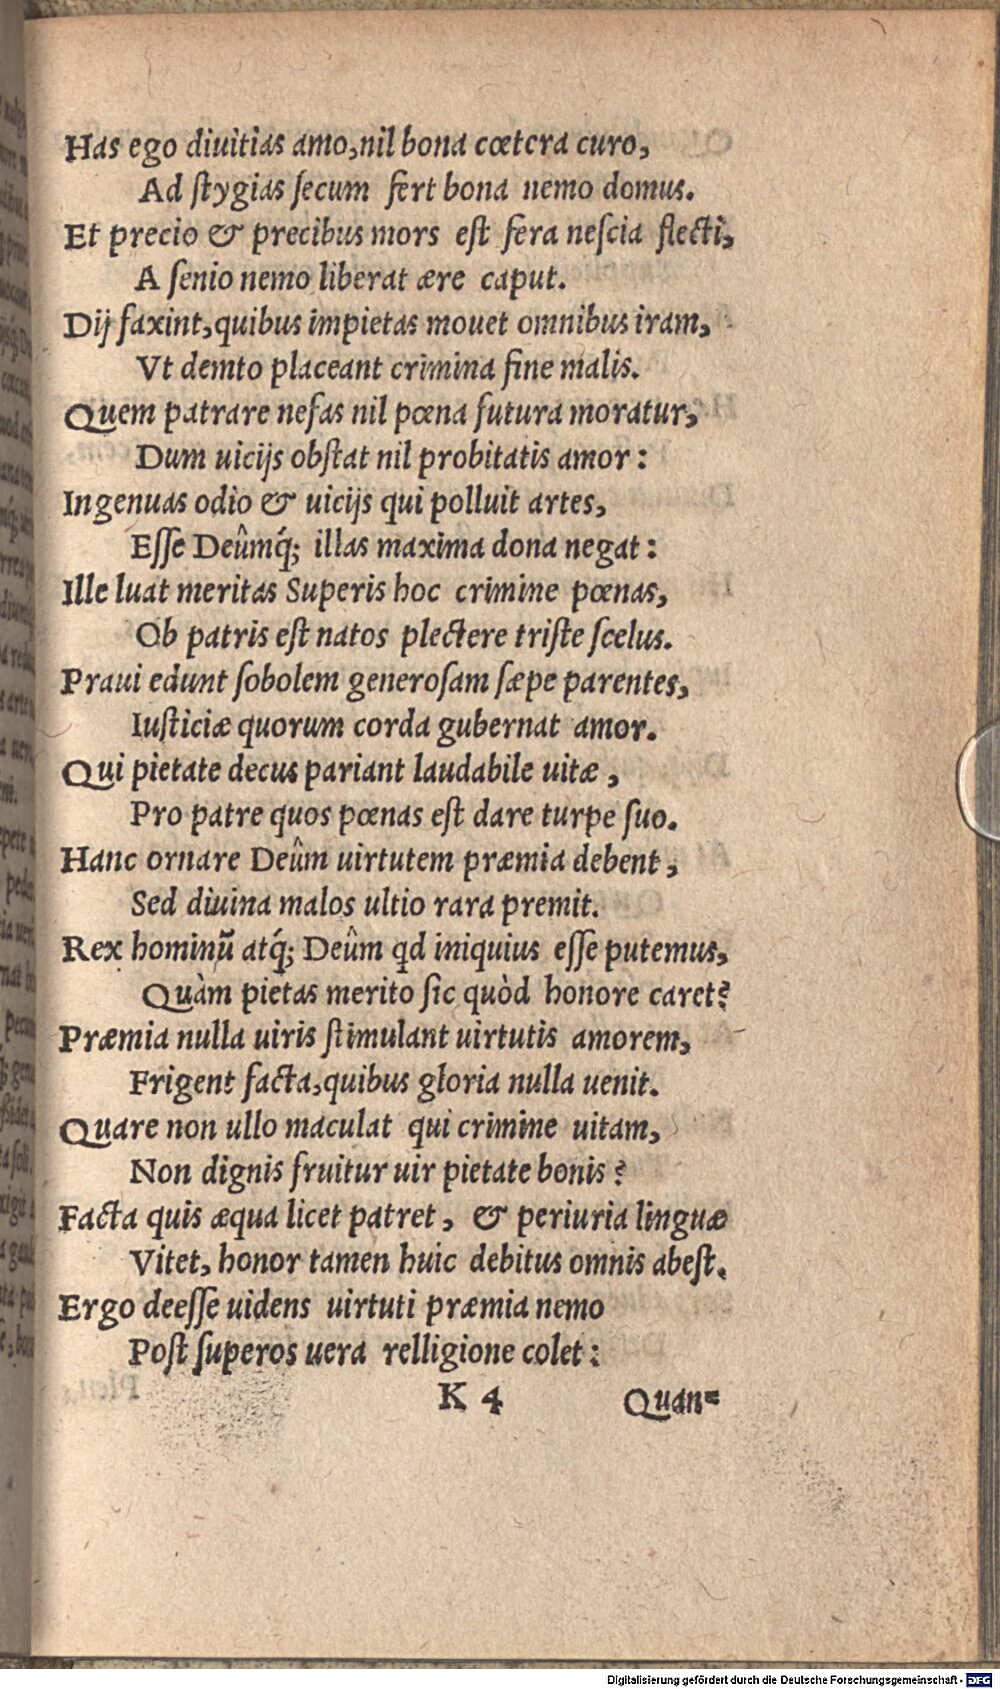 Has ego diuitias amo,nil bona cœtera curo,
Ad ſtygias ſecum fert bona nemo domus.
Et precio & precibus mors eſt fera neſcia flecti,
A ſenio nemo liberat ære caput.
Dij faxint,quibus impietas mouet omnibus iram,
Vt demto placeant crimina fine malis.
Quem patrare nefas nil pœna futura moratur,
Dum uicijs obſtat nil probitatis amor:
Ingenuas odio & uicijs qui polluit artes,
Eſſe Deûmq́; illas maxima dona negat:
Ille luat meritas Superis hoc crimine pœnas,
Ob patris eſt natos plectere triſte ſcelus.
Praui edunt ſobolem generoſam ſæpe parentes,
Iuſticiæ quorum corda gubernat amor.
Qui pietate decus pariant laudabile uitæ,
Pro patre quos pœnas eſt dare turpe ſuo.
Hanc ornare Deûm uirtutem præmia debent,
Sed diuina malos ultio rara premit.
Rex hominũ atq́; Deûm qd iniquius eſſe putemus,
Quàm pietas merito ſic quòd honore caret?
Præmia nulla uiris ſtimulant uirtutis amorem,
Frigent facta,quibus gloria nulla uenit.
Quare non ullo maculat qui crimine uitam,
Non dignis fruitur uir pietate bonis?
Facta quis æqua licet patret, & periuria linguæ
Vitet, honor tamen huic debitus omnis abeſt.
Ergo deeſſe uidens uirtuti præmia nemo
Poſt ſuperos uera relligione colet:
K 4 Quan=
Digitalisierung gefördert durch die Deutsche Forschungsgemeinschaft - DFG